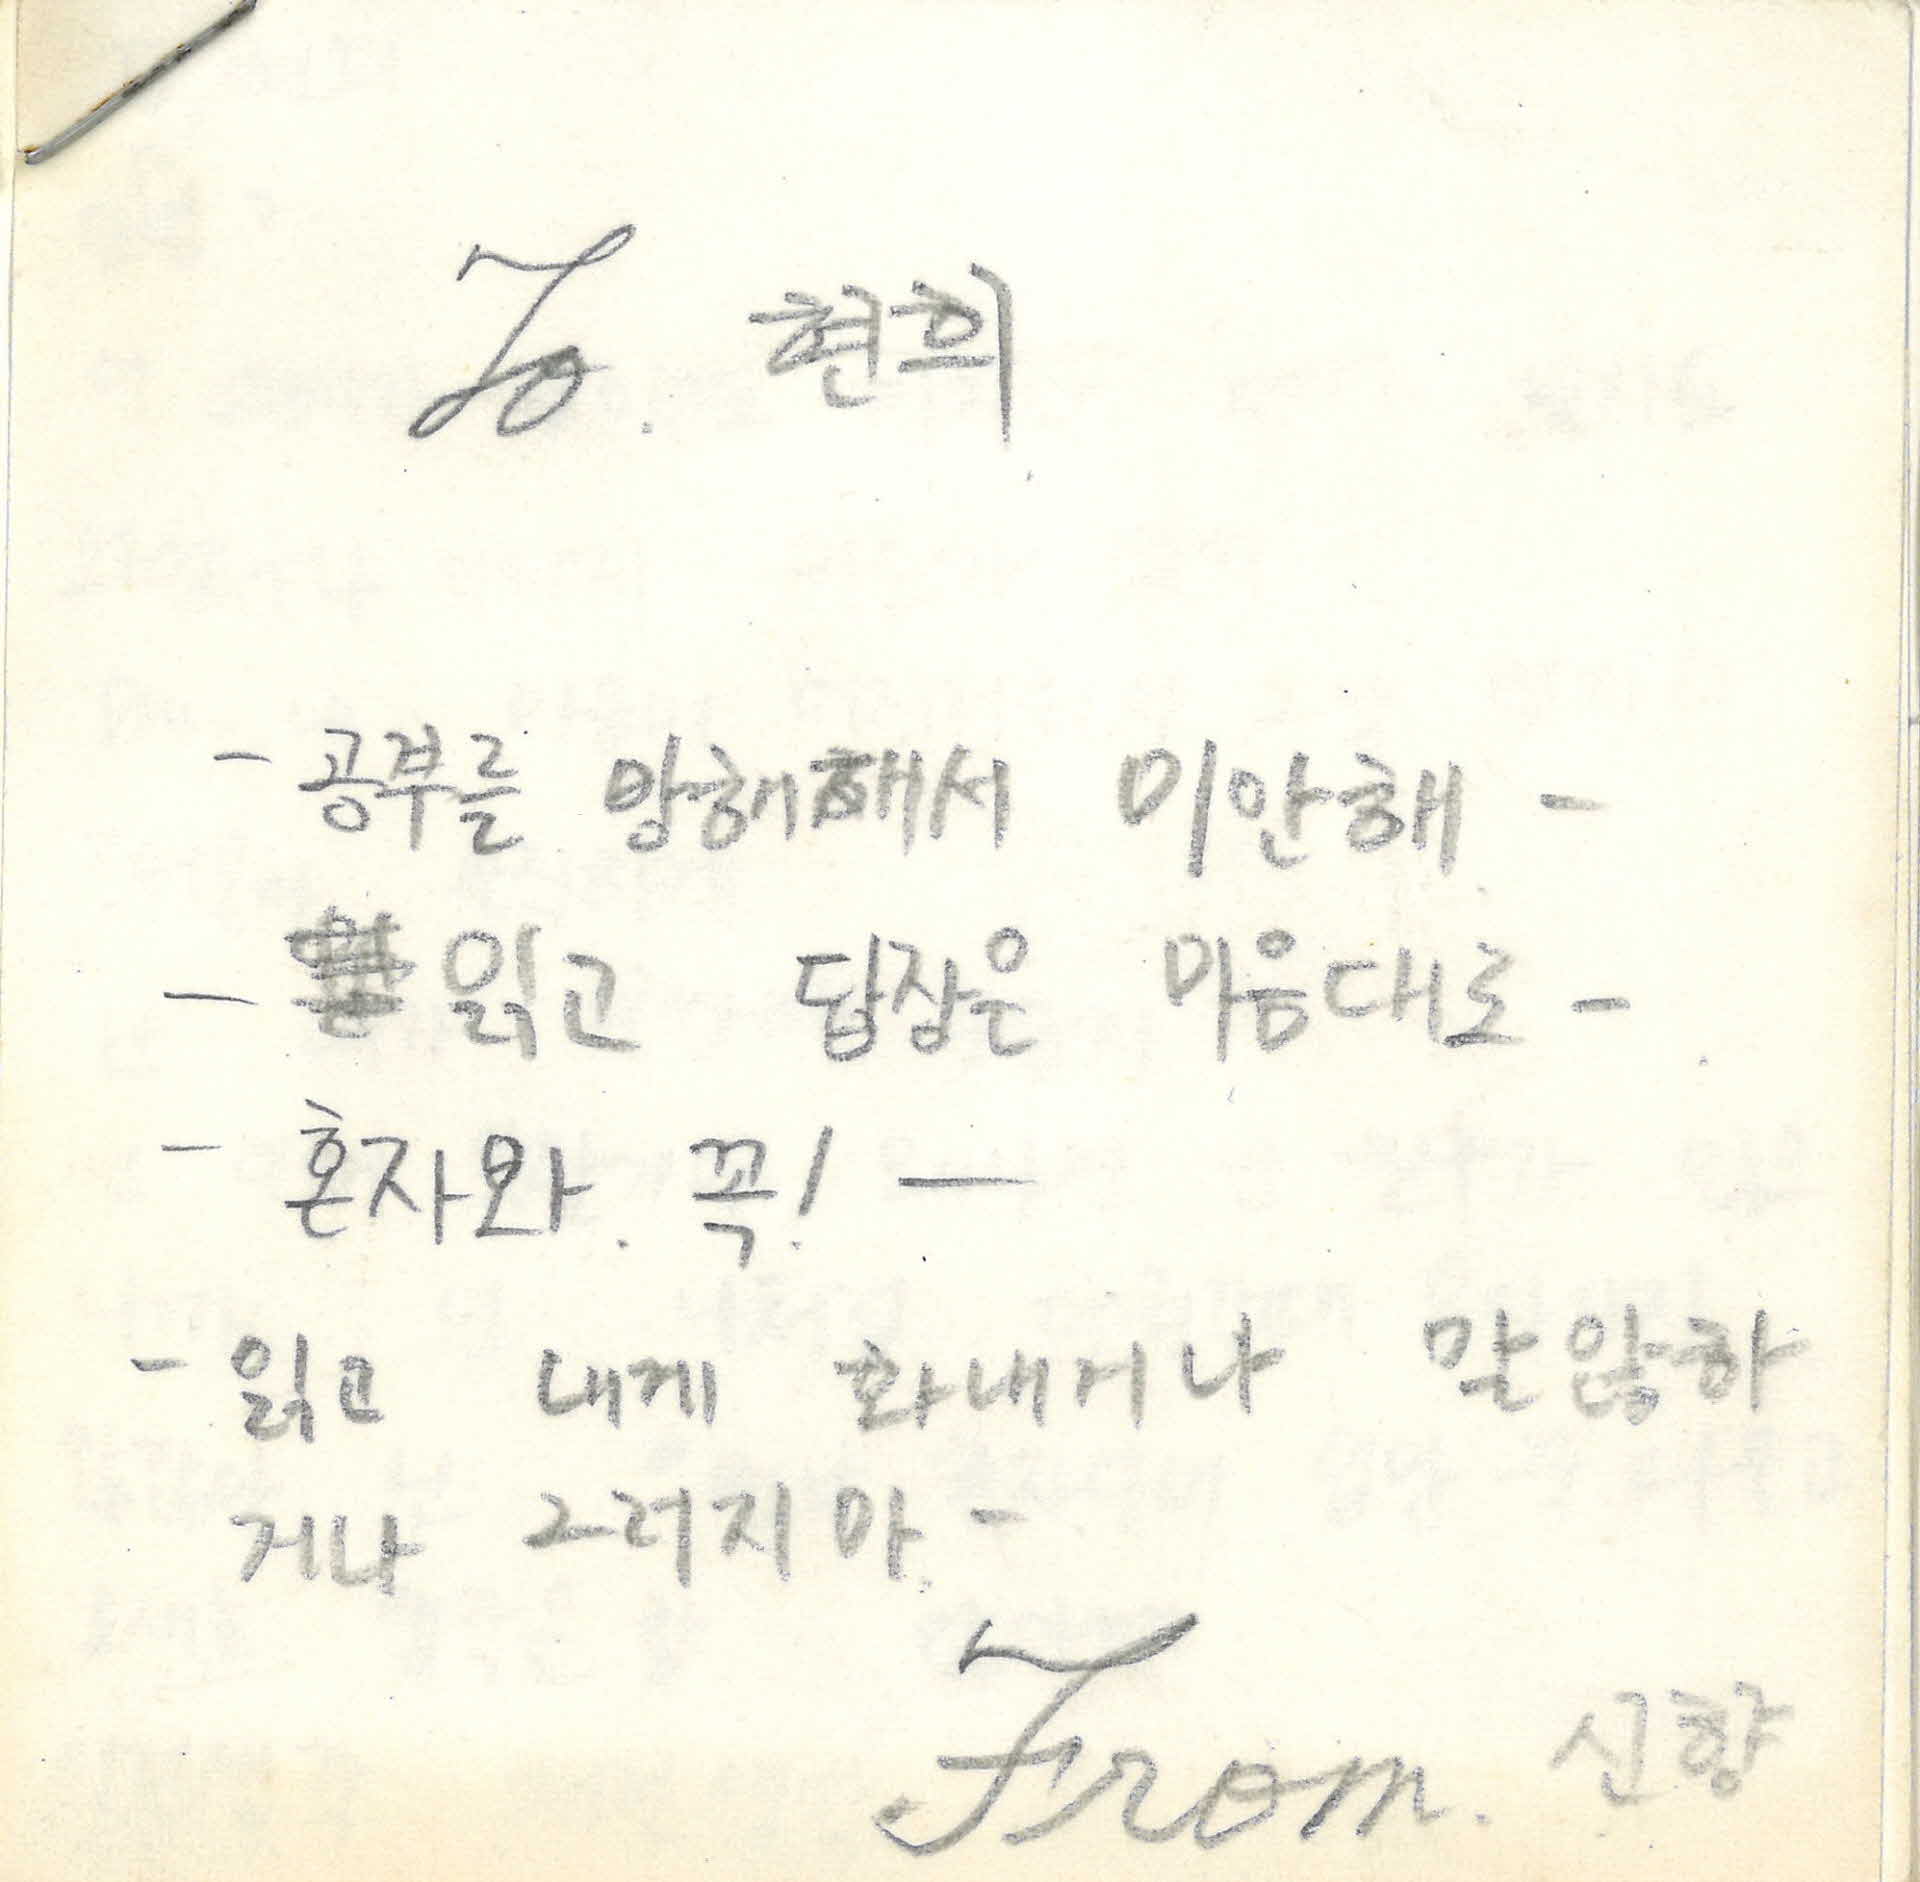 To. 현희
- 공부를 망해해서 미안해 -
- 읽고 답장은 마음대로 -
- 혼자와. 꼭! —
- 읽고 내게 화내거나 말않하
거나 그러지마. -
From. 신향